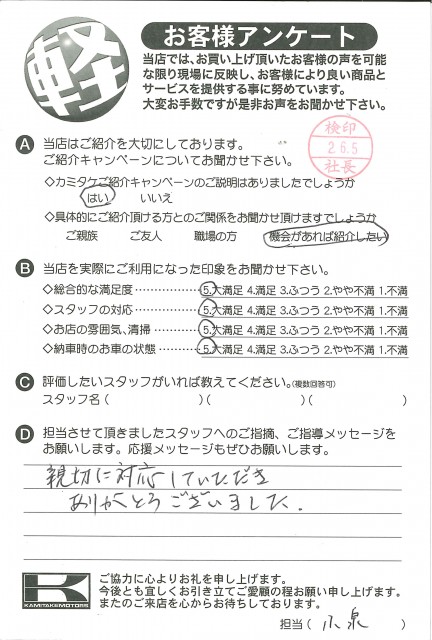 軽
お客様アンケート
当店では、お買い上げ頂いたお客様の声を可能
な限り現場に反映し、お客様により良い商品と
サービスを提供する事に努めています。
大変お手数ですが是非お声をお聞かせ下さい。
A 当店はご紹介を大切にしております。
ご紹介キャンペーンについてお聞かせ下さい。
検印
26.5
社長
◇カミタケご紹介キャンペーンのご説明はありましたでしょうか
はい いいえ
◇具体的にご紹介頂ける方とのご関係をお聞かせ頂けますでしょうか
ご親族 ご友人 職場の方 機会があれば紹介したい
B 当店を実際にご利用になった印象をお聞かせ下さい。
◇総合的な満足度 ⋯⋯⋯⋯⋯ 5.大満足 4.満足 3.ふつう 2.やや不満 1.不満
◇スタッフの対応 ⋯⋯⋯⋯⋯ 5.大満足 4.満足 3.ふつう 2.やや不満 1.不満
◇お店の雰囲気、清掃 ⋯⋯⋯ 5.大満足 4.満足 3.ふつう 2.やや不満 1.不満
◇納車時のお車の状態 ⋯⋯⋯ 5.大満足 4.満足 3.ふつう 2.やや不満 1.不満
C 評価したいスタッフがいれば教えてください。(複数回答可)
スタッフ名( )( )( )
D 担当させて頂きましたスタッフへのご指摘、ご指導メッセージを
お願いします。応援メッセージもぜひお願いします。
親切に対応していただき
ありがとうございました.
K
KAMITAKE MOTORS
ご協力に心よりお礼を申し上げます。
今後とも宜しくお引き立てご愛顧の程お願い申し上げます。
またのご来店を心からお待ちしております。
担当( 小泉 )